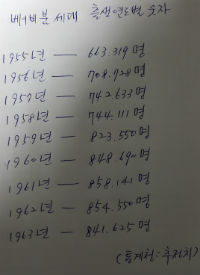 베이비붐 세대 출생연도별 숫자
1955년 — 663.319명
1956년 — 708.928명
1957년 — 742.633명
1958년 — 744.111명
1959년 — 823.550명
1960년 — 848.690명
1961년 — 858.141명
1962년 — 854.550명
1963년 — 841.625명
(통계청:추정치)